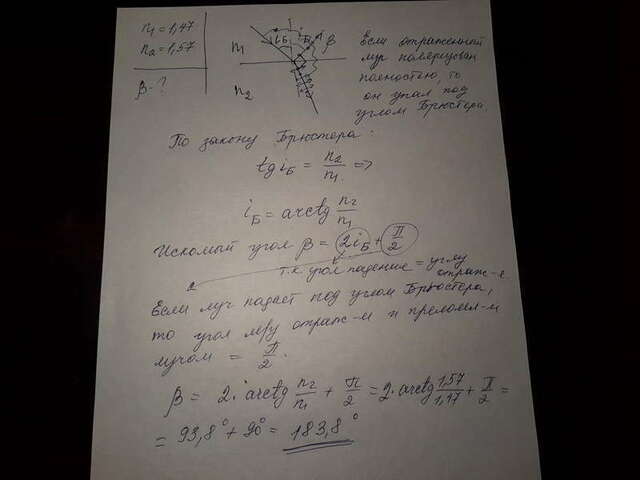 n₁ = 1,47
n₂ = 1,57
β - ?
i
iБ
iБ
β
n₁
n₂
Если отраженный
луч поляризован
полностью, то
он упал под
углом Брюстера.
По закону Брюстера:
tg iБ = n₂/n₁ =>
iБ = arctg n₂/n₁
Искомый угол β = 2iБ + π/2
т.к угол падение = углу
отраж-е
Если луч падает под углом Брюстера,
то угол м/у отраж-м и преломл-м
лучом = π/2.
β = 2·arctg n₂/n₁ + π/2 = 2·arctg 1,57/1,47 + π/2 =
= 93,8° + 90° = 183,8°